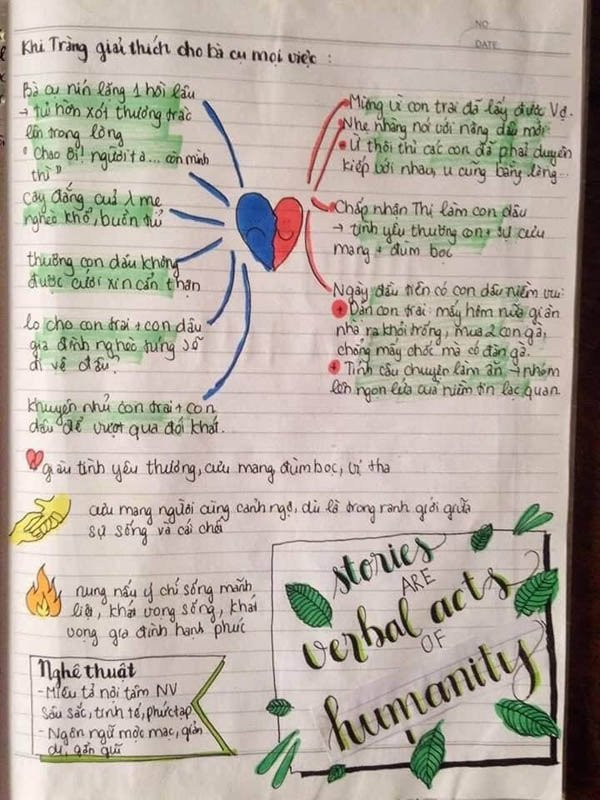 NO
DATE
Khi Tràng giải thích cho bà cụ mọi việc :
Bà cụ nín lặng 1 hồi lâu
→ tủi hờn xót thương trắc
lên trong lòng
"Chao ôi! người ta... còn mình
thì"
Cay đắng của λ mẹ
nghèo khổ, buồn tủi
thương con dâu không
được cưới xin cẩn thận
lo cho con trai + con dâu
gia đình nghèo túng sẽ
đi về đâu?
khuyên nhủ con trai + con
dâu để vượt qua đói khát.
Mừng vì con trai đã lấy được vợ.
Nhẹ nhàng nói với nàng dâu mới
Ừ thôi thì các con đã phải duyên
kiếp với nhau, u cũng bằng lòng...
Chấp nhận Thị làm con dâu
→ tình yêu thương con + sự cưu
mang + đùm bọc
Ngày đầu tiên có con dâu niềm vui:
+ Dặn con trai: mấy hôm nữa gì ăn
nhà ra khỏi trống, mua 2 con gà,
chống mấy chốc mà có đàn gà.
+ Tính câu chuyện làm ăn → nhóm
lên ngọn lửa của niềm tin lạc quan
giàu tình yêu thương, cưu mang đùm bọc, vị tha
cưu mang người cùng cảnh ngộ, dù là trong ranh giới giữa
sự sống và cái chết
nung nấu ý chí sống mãnh
liệt, khát vọng sống, khát
vọng gia đình hạnh phúc
Nghệ thuật
- Miêu tả nội tâm NV
sâu sắc, tinh tế, phức tạp
- Ngôn ngữ mộc mạc, giản
dị, gần gũi
stories
ARE
verbal acts
OF
humanity